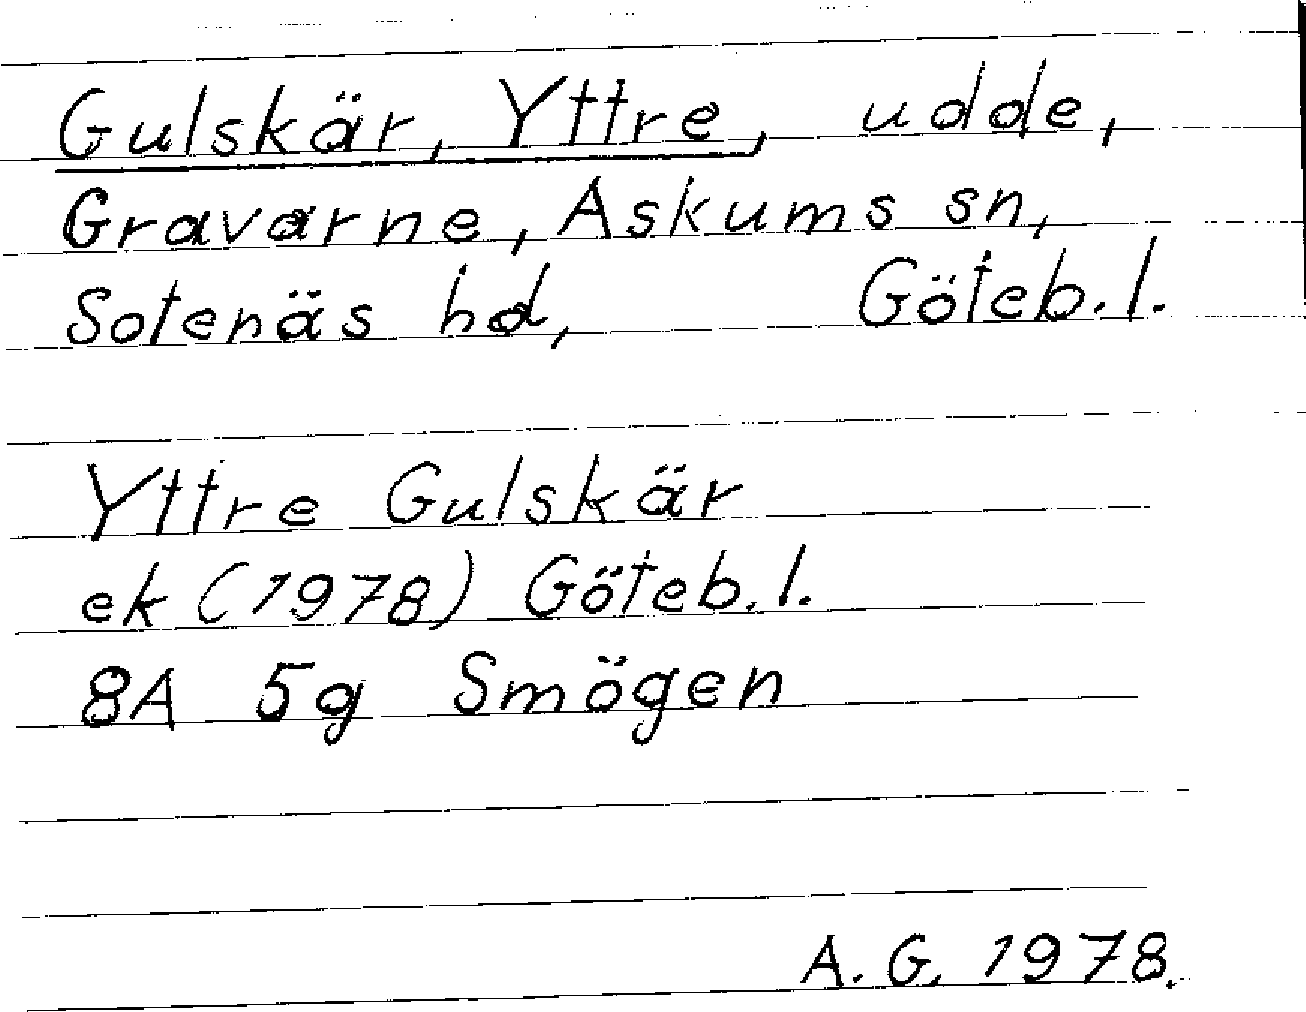 Gulskär, Yttre, udde,
Gravarne, Askums sn,
Sotenäs hd, Göteb. l.
Yttre Gulskär
ek (1978) Göteb. l.
8A 5g Smögen
A. G. 1978.